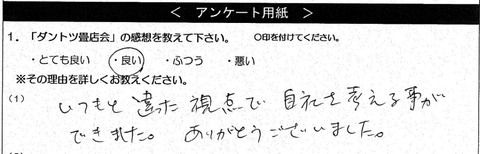 < アンケート用紙 >
1．「ダントツ畳店会」の感想を教えて下さい。 ○印を付けてください。
・とても良い ・良い ・ふつう ・悪い
※その理由を詳しくお教えください。
(1) いつもと違った視点で 自社を考える事が
できました。 ありがとうございました。